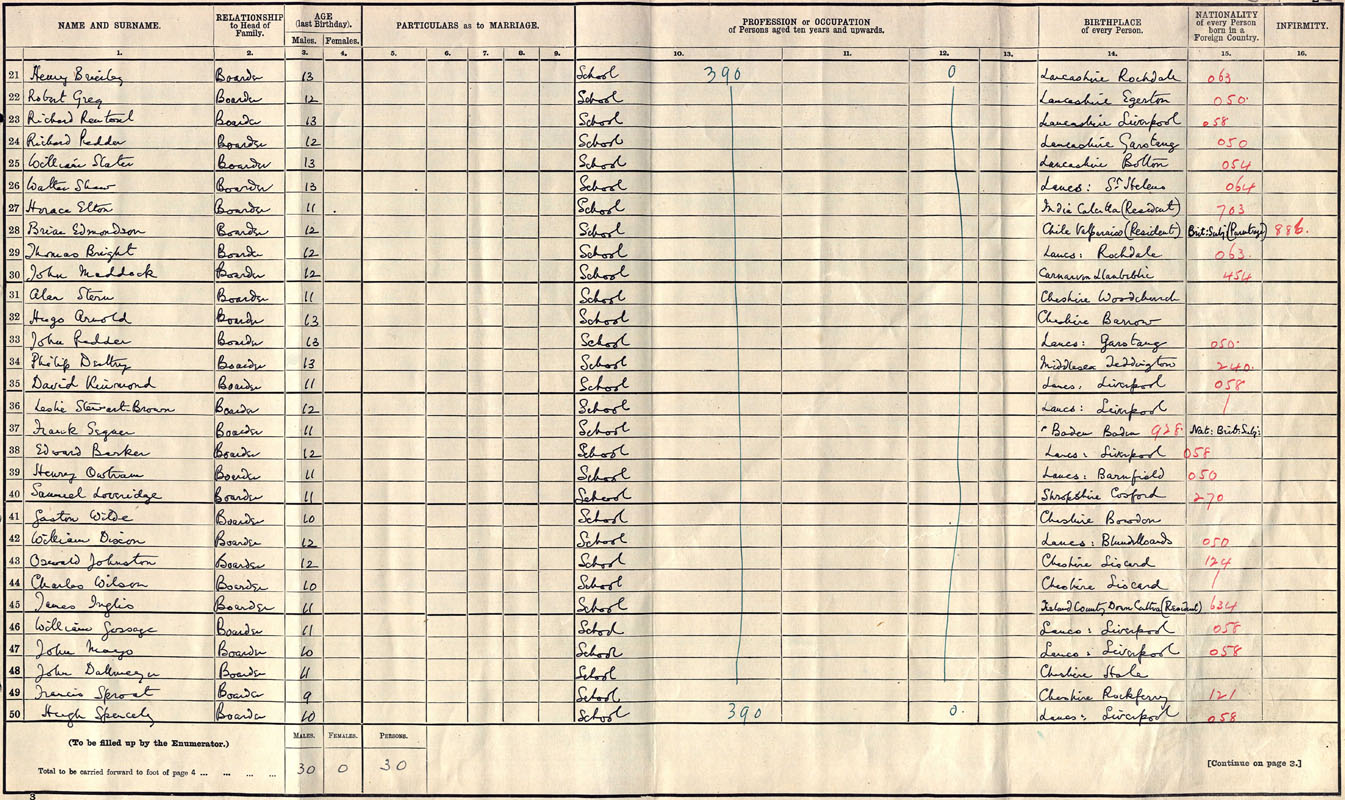 NAME AND SURNAME. RELATIONSHIP to Head of Family. AGE (last Birthday). PARTICULARS as to MARRIAGE. PROFESSION or OCCUPATION of Persons aged ten years and upwards. BIRTHPLACE of every Person. NATIONALITY of every Person born in a Foreign Country. INFIRMITY.
Males. Females.
1. 2. 3. 4. 5. 6. 7. 8. 9. 10. 11. 12. 13. 14. 15. 16.
21 Henry Brierley Boarder 13 School 390 0 Lancashire Rochdale 063
22 Robert Greg Boarder 12 School Lancashire Egerton 050
23 Richard Boarder 13 School Lancashire Liverpool 058
24 Richard Boarder 12 School Lancashire Garstang 050
25 William Slater Boarder 13 School Lancashire Bolton 054
26 Walter Shaw Boarder 13 School Lancs: St Helens 064
27 Horace Elton Boarder 11 School India Calcutta (Resident) 703
28 Brian Edmondson Boarder 12 School Chile Valparaiso (Resident) Brit: Subj (Parentage) 886.
29 Thomas Bright Boarder 12 School Lancs: Rochdale 063
30 John Maddock Boarder 12 School Carnarvon Llanbeblic 454
31 Alan Stern Boarder 11 School Cheshire Woodchurch
32 Hugo Arnold Boarder 13 School Cheshire Barrow
33 John Boarder 13 School Lancs: Garstang 050
34 Philip Boarder 13 School Middlesex Teddington 240
35 David Boarder 11 School Lancs. Liverpool 058
36 Leslie Stewart-Brown Boarder 12 School Lancs: Liverpool /
37 Frank Boarder 11 School Baden Baden 928 Nat: Brit: Subj:
38 Edward Barker Boarder 12 School Lancs: Liverpool 058
39 Henry Outram Boarder 11 School Lancs: Barnfield 050
40 Samuel Loveridge Boarder 11 School Shropshire Cosford 270
41 Gaston Wilde Boarder 10 School Cheshire Bowdon
42 William Dixon Boarder 12 School Lancs: Blundellsands 050
43 Oswald Johnston Boarder 12 School Cheshire Liscard 124
44 Charles Wilson Boarder 10 School Cheshire Liscard /
45 James Inglis Boarder 11 School Ireland County Down (Resident) 634
46 William Gossage Boarder 11 School Lancs: Liverpool 058
47 John Mayo Boarder 10 School Lancs: Liverpool 058
48 John Dallmeyer Boarder 11 School Cheshire Hale
49 Francis Sproat Boarder 9 School Cheshire Rockferry 121
50 Hugh Spencely Boarder 10 School 390 0. Lancs: Liverpool 058
(To be filled up by the Enumerator.) MALES. FEMALES. PERSONS.
Total to be carried forward to foot of page 4 ... ... ... ... 30 0 30 [Continue on page 3.]
3